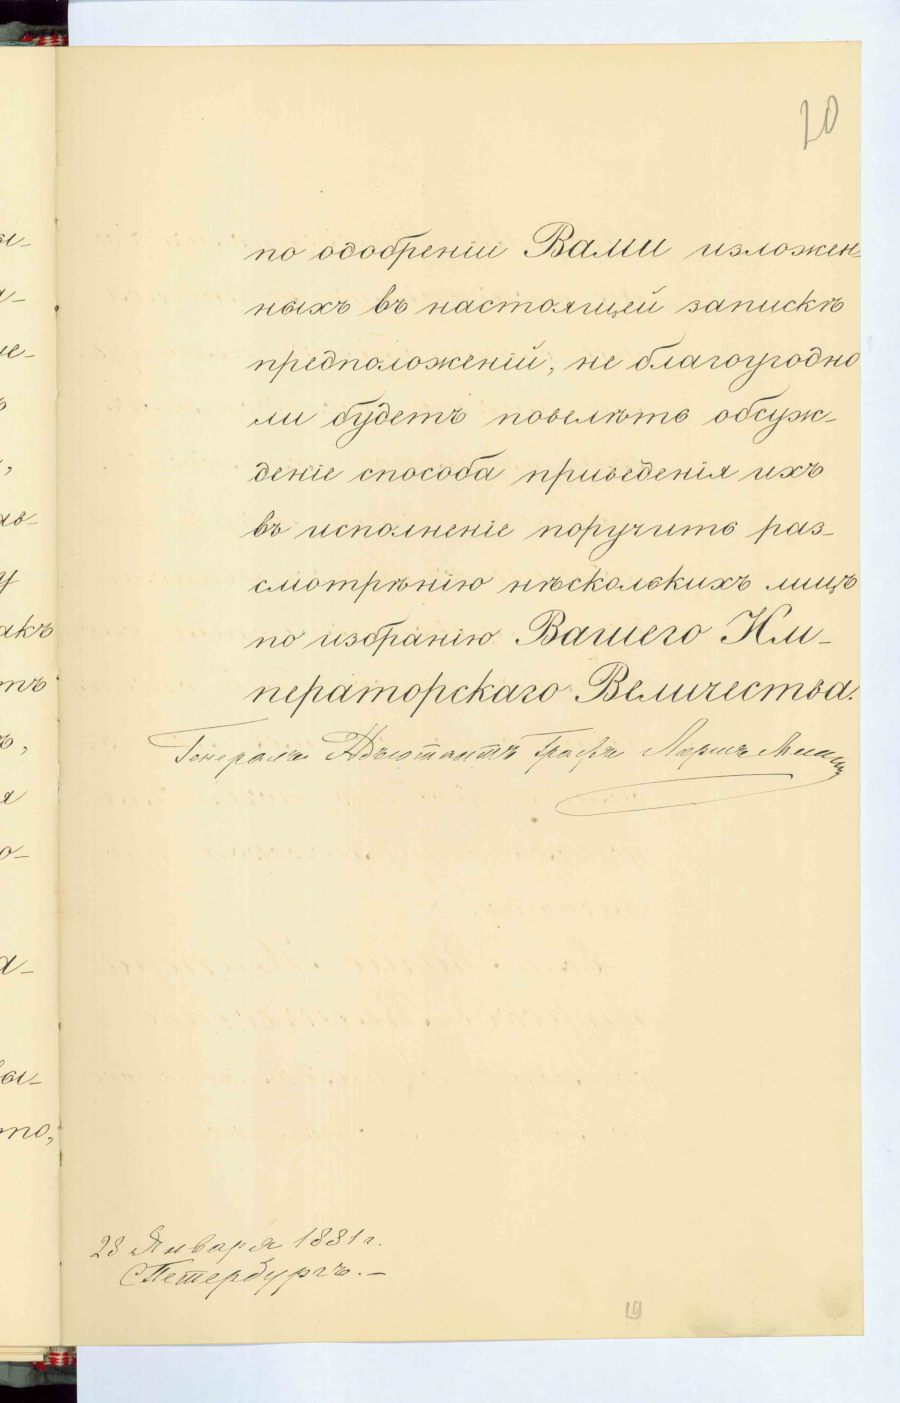 20
по одобреніи Вами изложен-
ныхъ въ настоящей запискѣ
предположеній, не благоугодно
ли будетъ повелѣть обсуж-
деніе способа приведенія ихъ
въ исполненіе поручить раз-
смотрѣнію нѣсколькихъ лицъ
по избранію Вашего Им-
ператорскаго Величества.
Генералъ Адъютантъ Графъ Лорисъ Меликовъ
28 Января 1881 г.
С Петербургъ.
19
ы-
е-
ь
,
ав-
у
акъ
тъ
ъ,
я
о-
а-
вы-
то,